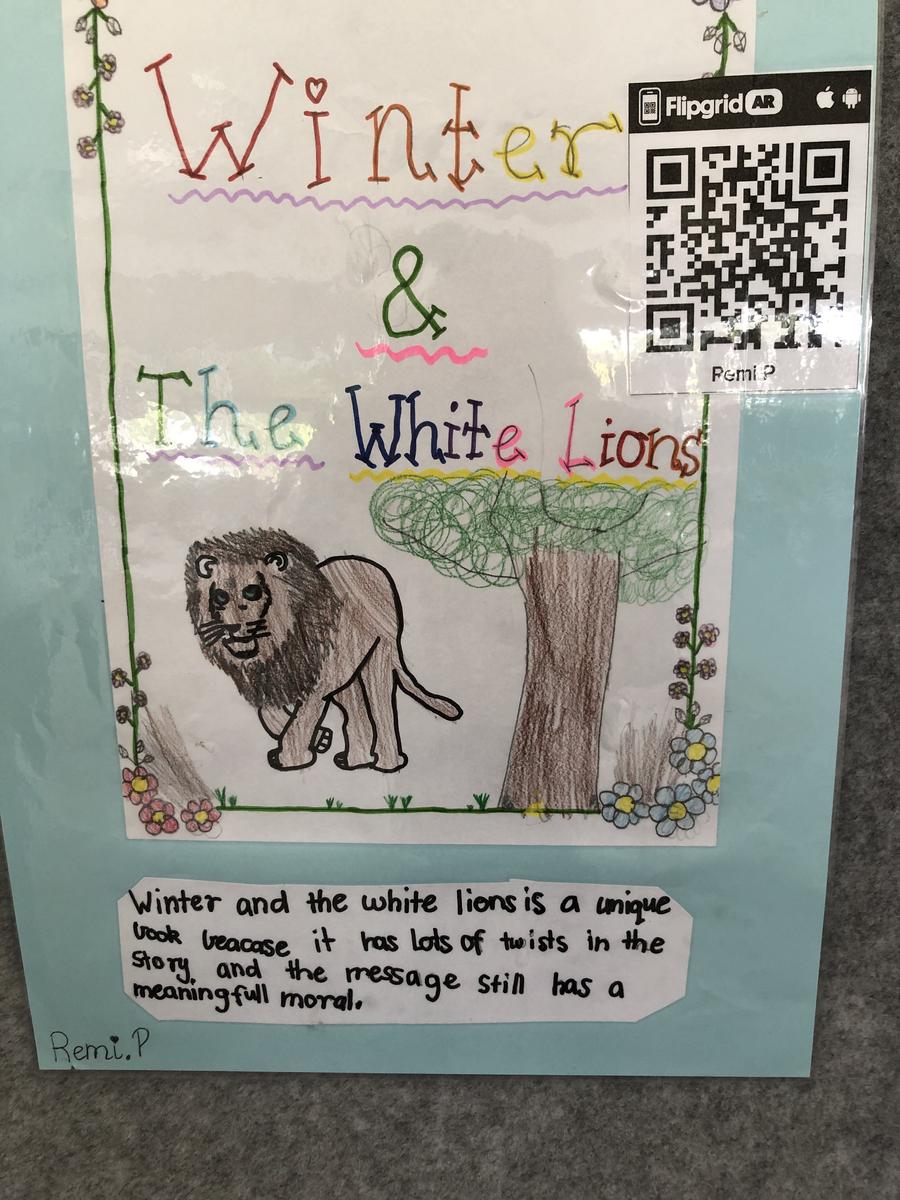 Winter
Flipgrid AR
&
Remi P
The White Lions
Winter and the white lions is a unique
book beacase it has lots of twists in the
story and the message still has a
meaningfull moral.
Remi.P